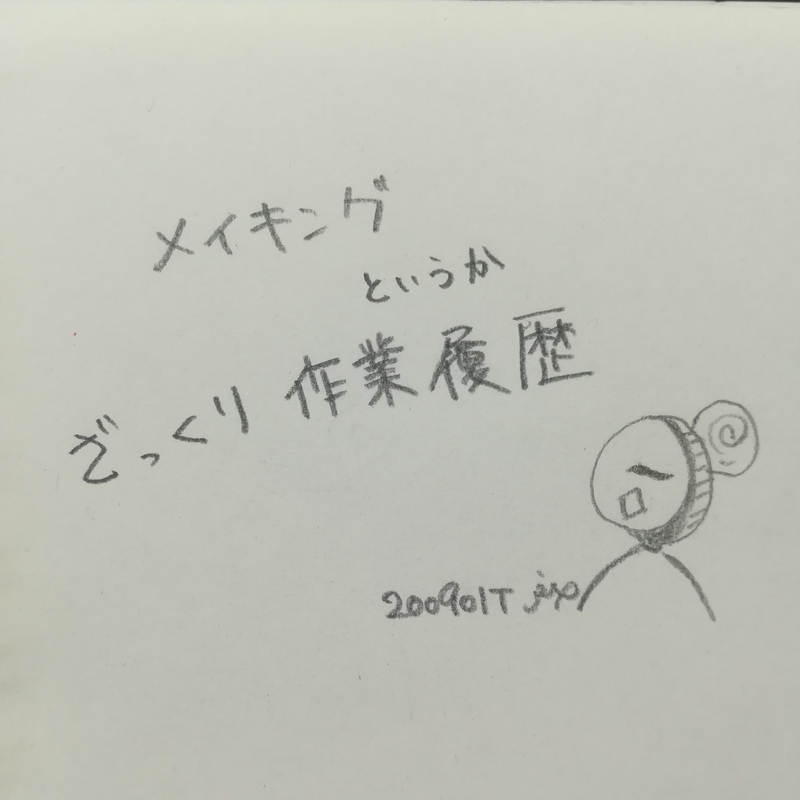 メイキング
というか
ざっくり作業履歴
200901T